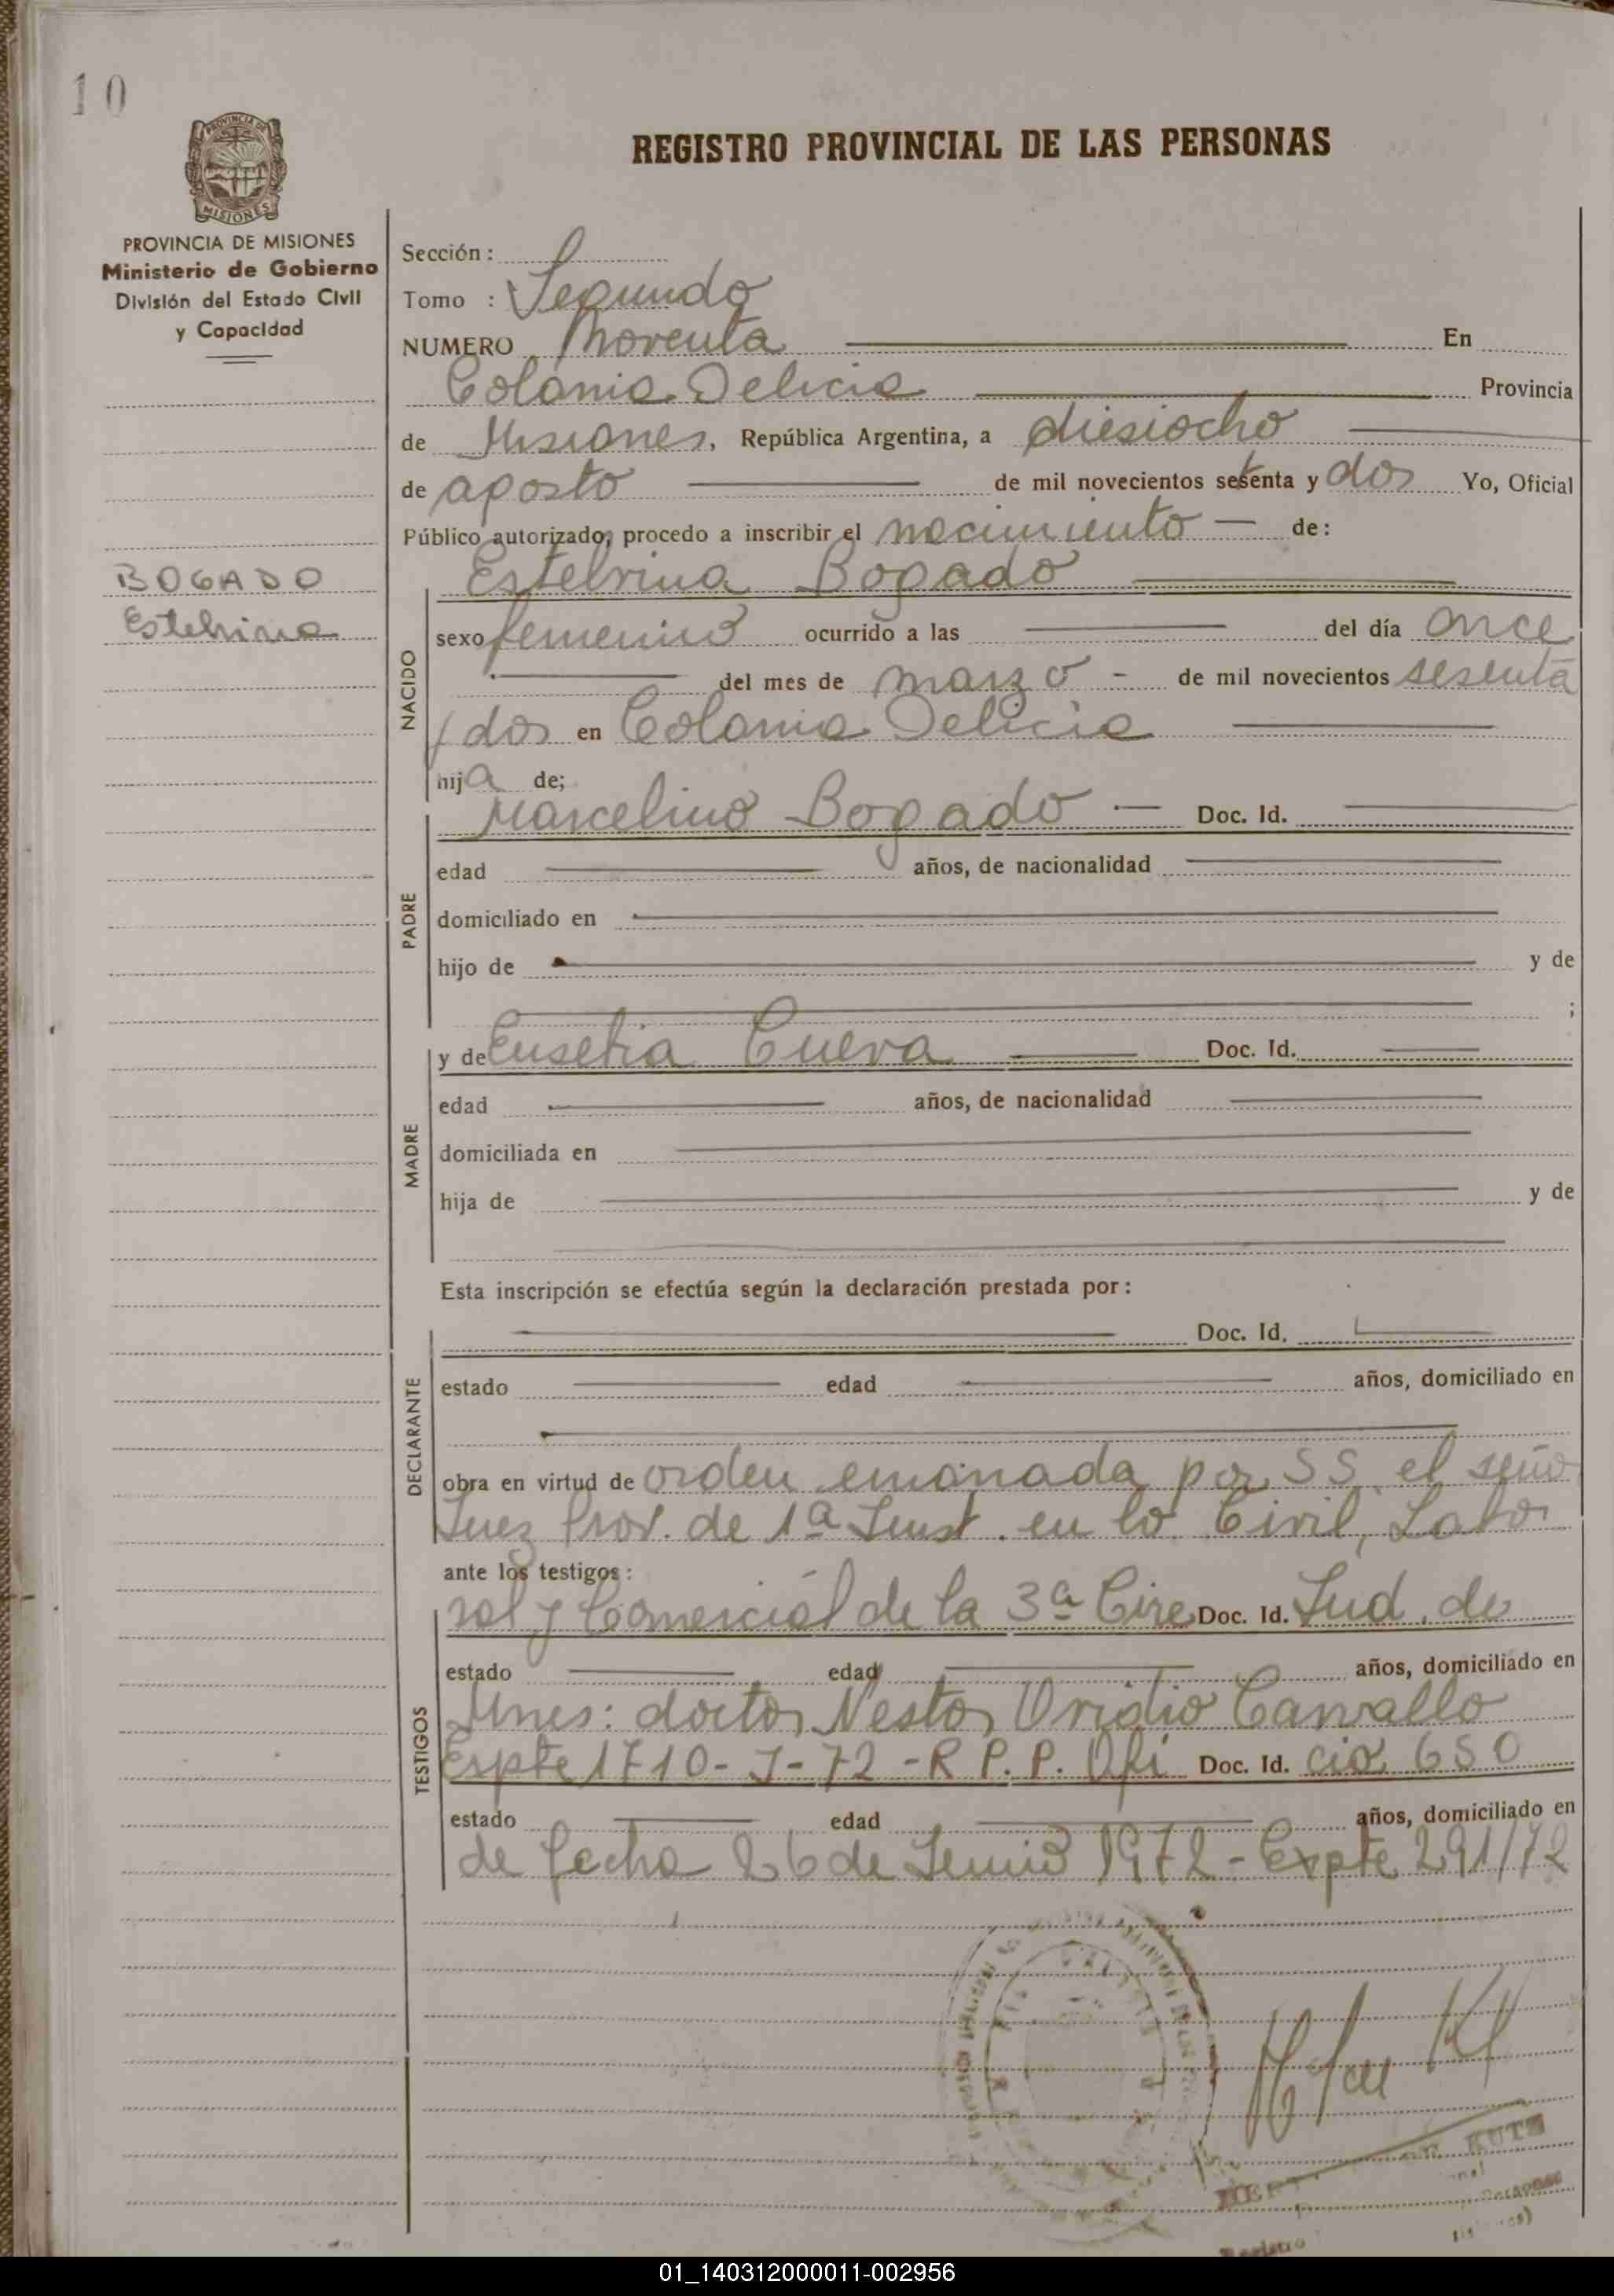 10
PROVINCIA DE
MISIONES
REGISTRO PROVINCIAL DE LAS PERSONAS
PROVINCIA DE MISIONES
Ministerio de Gobierno
División del Estado Civil
y Capacidad
Sección:
Tomo : Segundo
NUMERO Noventa En
Colonia Delicia Provincia
de Misiones, República Argentina, a diesiocho
de agosto de mil novecientos setenta y dos Yo, Oficial
Público autorizado, procedo a inscribir el nacimiento — de:
BOGADO
Estelvina
Estelvina Bogado
NACIDO
sexo femenino ocurrido a las del día once
del mes de marzo - de mil novecientos sesenta
y dos en Colonia Delicia
hija de;
PADRE
Marcelino Bogado — Doc. Id.
edad años, de nacionalidad
domiciliado en
hijo de y de
;
MADRE
y de Eusebia Cueva Doc. Id.
edad años, de nacionalidad
domiciliada en
hija de y de
Esta inscripción se efectúa según la declaración prestada por:
DECLARANTE
Doc. Id.
estado edad años, domiciliado en
obra en virtud de orden emanada por SS. el seño
Juez Prov. de 1ª Inst. en lo Civil, Labo
ante los testigos:
TESTIGOS
ral y Comercial de la 3ª Circ Doc. Id. Jud. de
estado edad años, domiciliado en
Mnes: doctor Nestor Ovidio Carvallo
Expte 1710-J-72-R P. P. Ofi Doc. Id. cio 650
estado edad años, domiciliado en
de fecha 26 de Junio 1972 - Expte 291/72
KUTZ
Registro
01_140312000011-002956